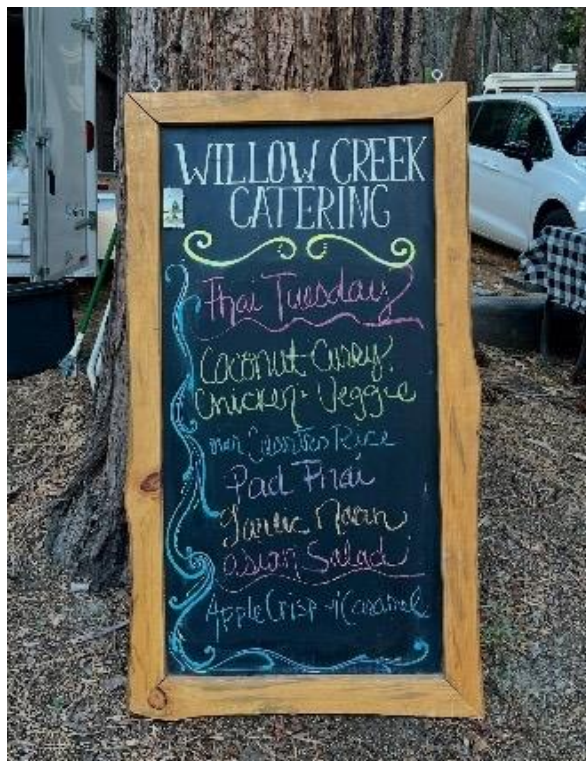 WILLOW CREEK
CATERING
Thai Tuesday
Coconut Curry:
Chicken - Veggie
Rice
Pad Thai
Garlic Naan
Asian Salad
Apple Crisp w/Caramel